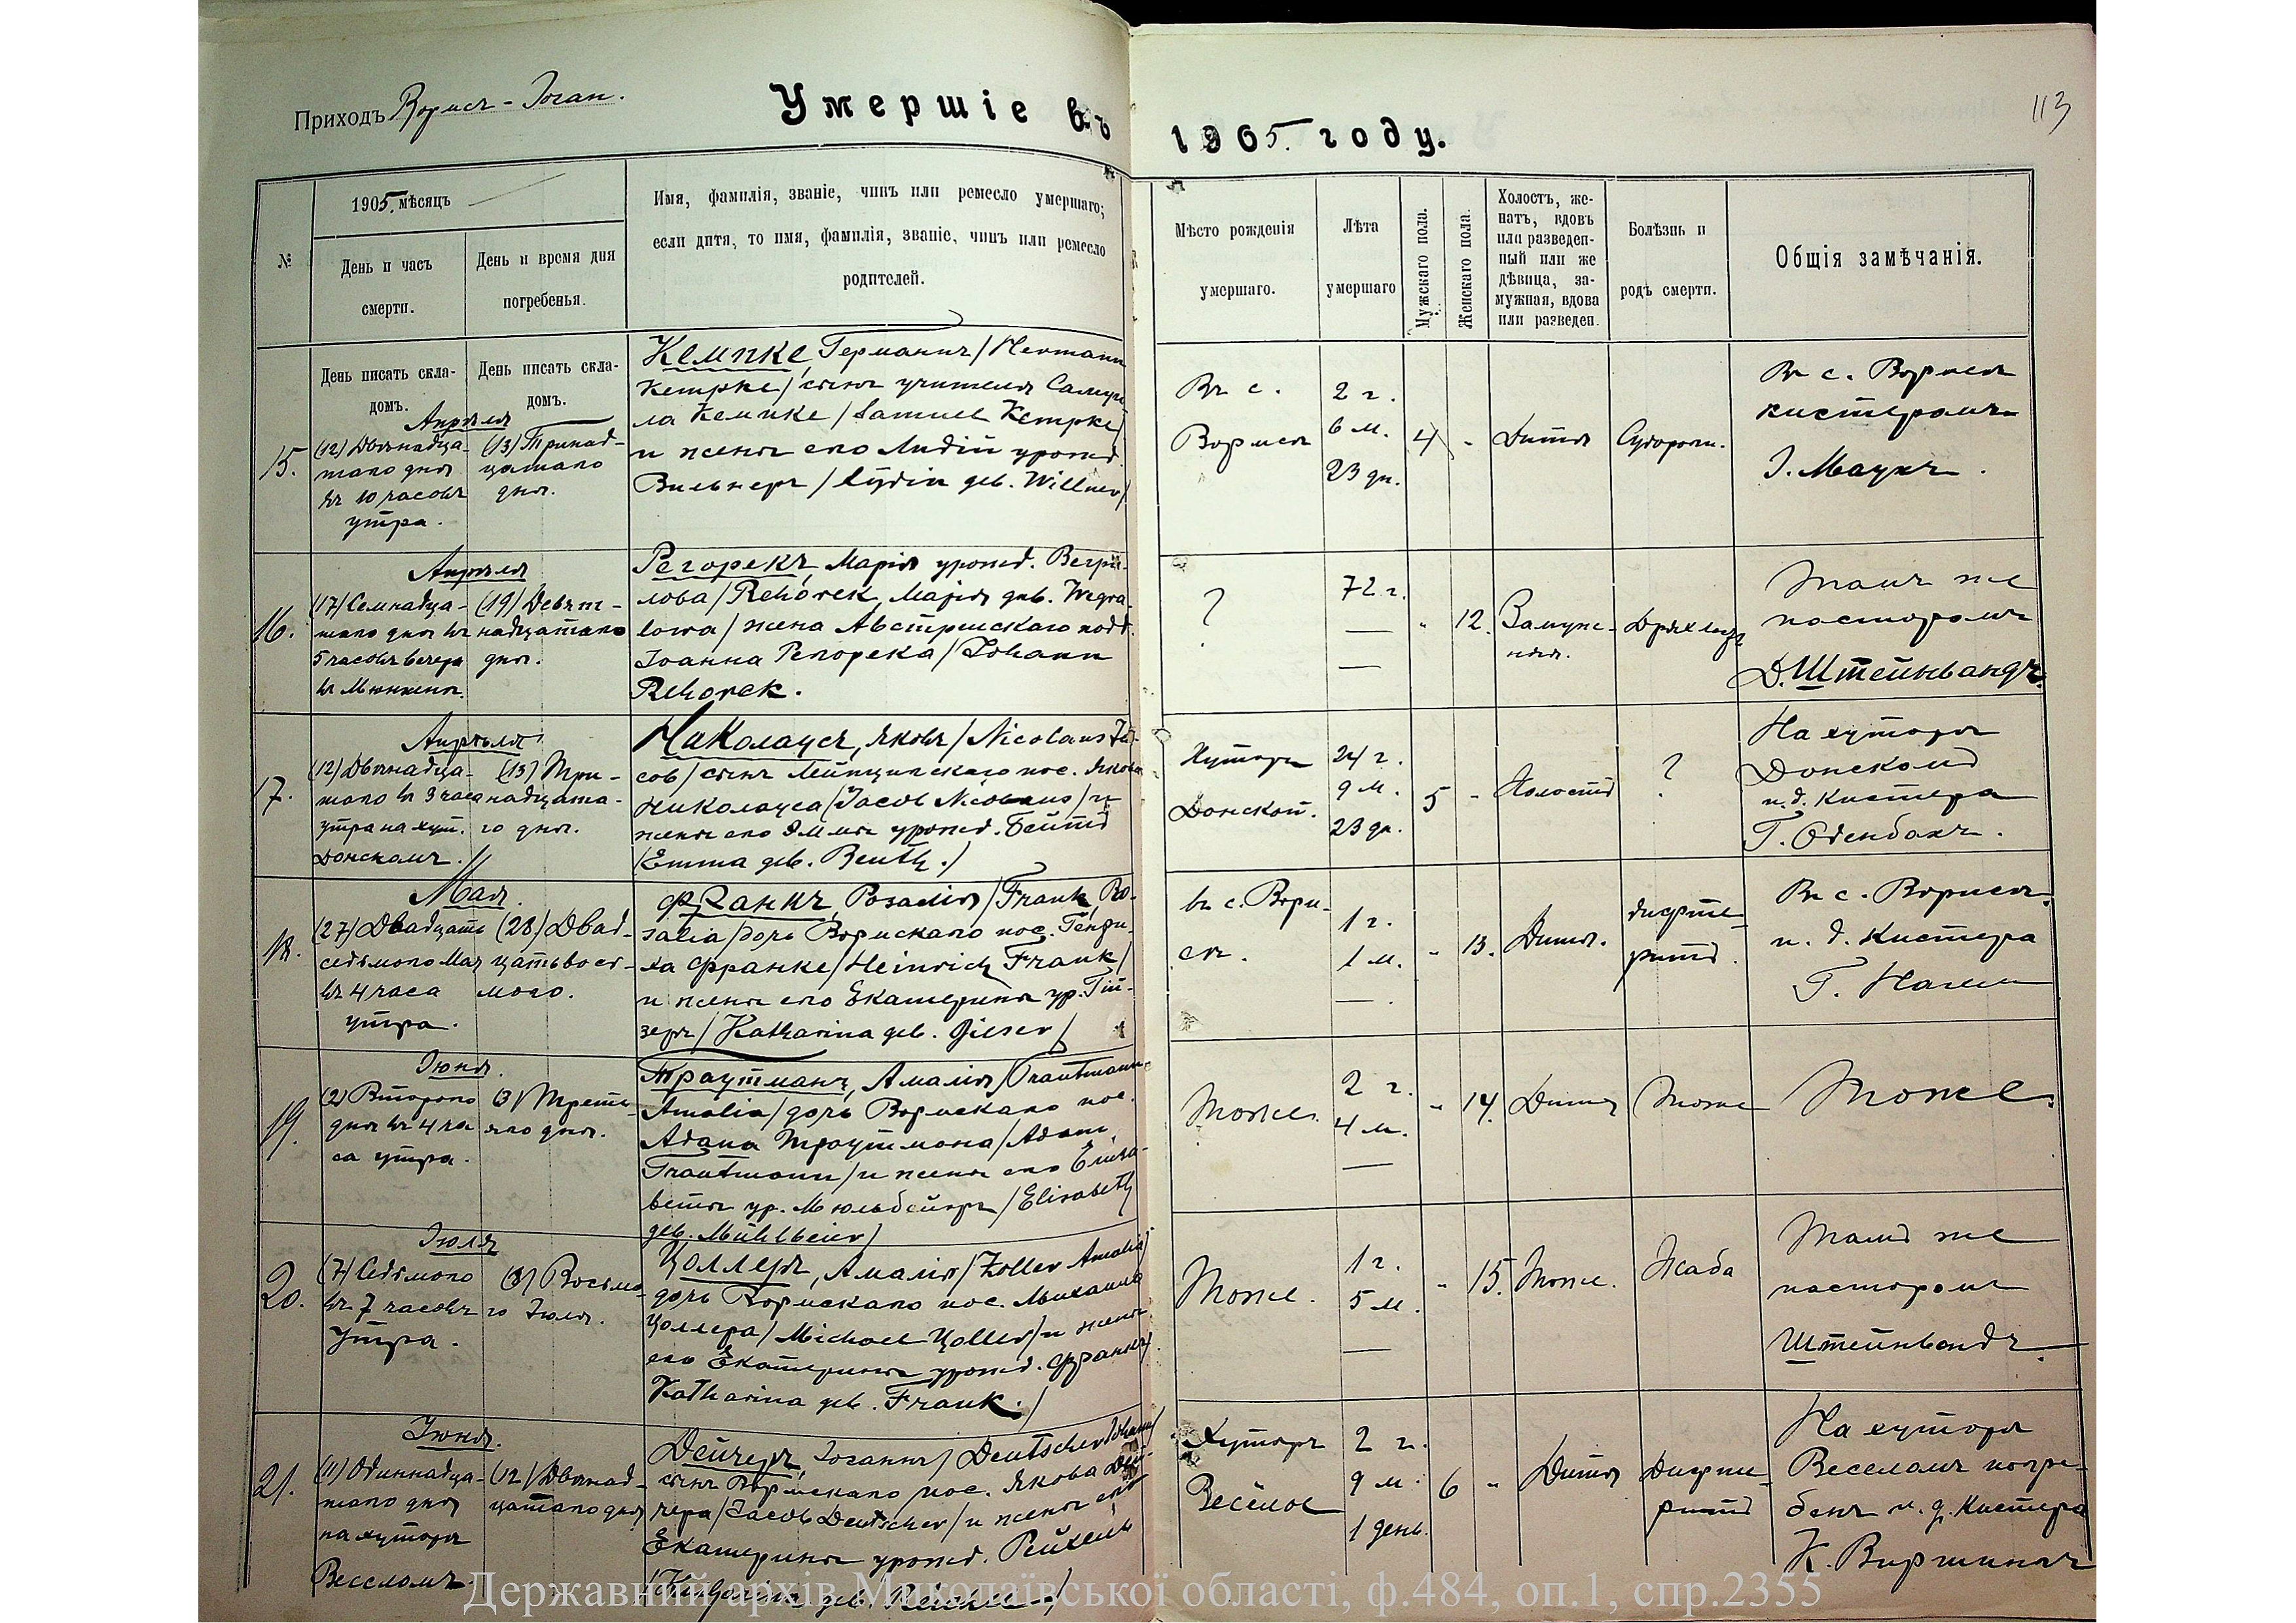 Приходъ Вормсъ - Іоган.
Умершіе въ 1905 году.
113
№
1905 мѣсяцъ
День и часъ смерти.
День и время дня погребенья.
Имя, фамилія, званіе, чинъ или ремесло умершаго;
если дитя, то имя, фамилія, званіе, чинъ или ремесло
родителей.
Мѣсто рожденія умершаго.
Лѣта умершаго
Мужскаго пола.
Женскаго пола.
Холостъ, же-
натъ, вдовъ
или разведен-
ный или же
дѣвица, за-
мужная, вдова
или разведен.
Болѣзнь и родъ смерти.
Общія замѣчанія.
День писать скла-
домъ.
День писать скла-
домъ.
15.
Апрѣля
(12) Двѣнадца-
таго дня
въ 10 часовъ
утра.
(13) Тринад-
цатаго
дня.
Кемпке, Германъ / Hermann
Kempke / сынъ учителя Самуи-
ла Кемпке / Samuel Kempke /
и жены его Лидіи урожд.
Вильнеръ / Lydia geb. Willner /
Въ с.
Вормсъ
2 г.
6 м.
23 дн.
4
"
Дитя
Судороги.
Въ с. Вормсъ
кистеромъ
І. Маукъ.
16.
Апрѣля
(17) Семнадца-
таго дня въ
5 часовъ вечера
въ Мюнхенѣ.
(19) Девят-
надцатаго
дня.
Регорекъ, Марія урожд. Вегри-
лова / Rehorek, Maria geb. Wegra-
lowa / жена Австрійскаго подд.
Іоанна Регорека / Johann
Rehorek.
?
72 г.
—
—
"
12.
Замуж-
няя.
Дряхлость
Тамъ же
пасторомъ
Д. Штейнвандъ.
17.
Апрѣля
(12) Двѣнадца-
таго въ 3 часа
утра на хут.
Донскомъ.
(13) Три-
надцата-
го дня.
Николаусъ, Яковъ / Nicolaus Ja-
cob / сынъ Лейпцигскаго пос. Якова
Николауса / Jacob Nicolaus / и
жены его Эммы урожд. Бейтъ
/ Emma geb. Beuth. /
Хуторъ
Донской.
24 г.
9 м.
23 дн.
5
"
Холостъ
?
На хуторѣ
Донскомъ
и. д. кистера
Г. Оденбахъ.
18.
Мая.
(27) Двадцать
седьмого Мая
въ 4 часа
утра.
(28) Двад-
цать вось-
мого.
Франкъ, Розалія / Frank, Ro-
salia / дочь Вормскаго пос. Генри-
ха Франке / Heinrich Frank /
и жены его Екатерины ур. Ги-
зеръ / Katharina geb. Gieser /
въ с. Ворм-
сѣ.
1 г.
1 м.
—.
"
13.
Дитя.
дифте-
ритъ.
Въ с. Вормсъ.
и. д. кистера
Г. Нагель
19.
Іюня.
(2) Второго
дня въ 4 ча-
са утра.
(3) Треть-
яго дня.
Траутманъ, Амалія / Trautmann
Amalia / дочь Вормскаго пос.
Адама Траутмана / Adam
Trautmann / и жены его Елиза-
веты ур. Мюльбейеръ / Elisabeth
geb. Mühlbeier /
Тоже.
2 г.
4 м.
—
"
14.
Дитя
Тоже
Тоже.
20.
Іюля
(7) Седьмого
въ 7 часовъ
утра.
(8) Восьмо-
го Іюля.
Цоллеръ, Амалія / Zoller Amalia /
дочь Вормскаго пос. Михаила
Цоллера / Michael Zoller / и жены
его Екатерины урожд. Франкъ /
Katharina geb. Frank. /
Тоже.
1 г.
5 м.
—
"
15.
Тоже.
Жаба
Тамъ же
пасторомъ
Штейнвандъ.
21.
Іюня.
(11) Одиннадца-
таго дня
на хуторѣ
Веселомъ.
(12) Двѣнад-
цатаго дня
Дейчеръ, Іоганнъ / Deutscher Johann /
сынъ Вормскаго пос. Якова Дей-
чера / Jacob Deutscher / и жены его
Екатерины урожд. Рейхель
/ Katharina geb. Reichel /
Хуторъ
Веселое
2 г.
9 м.
1 день.
6
"
Дитя
Дифте-
ритъ
На хуторѣ
Веселомъ погре-
бенъ и. д. кистера
К. Виршингъ
Державний архів Миколаївської області, ф.484, оп.1, спр.2355